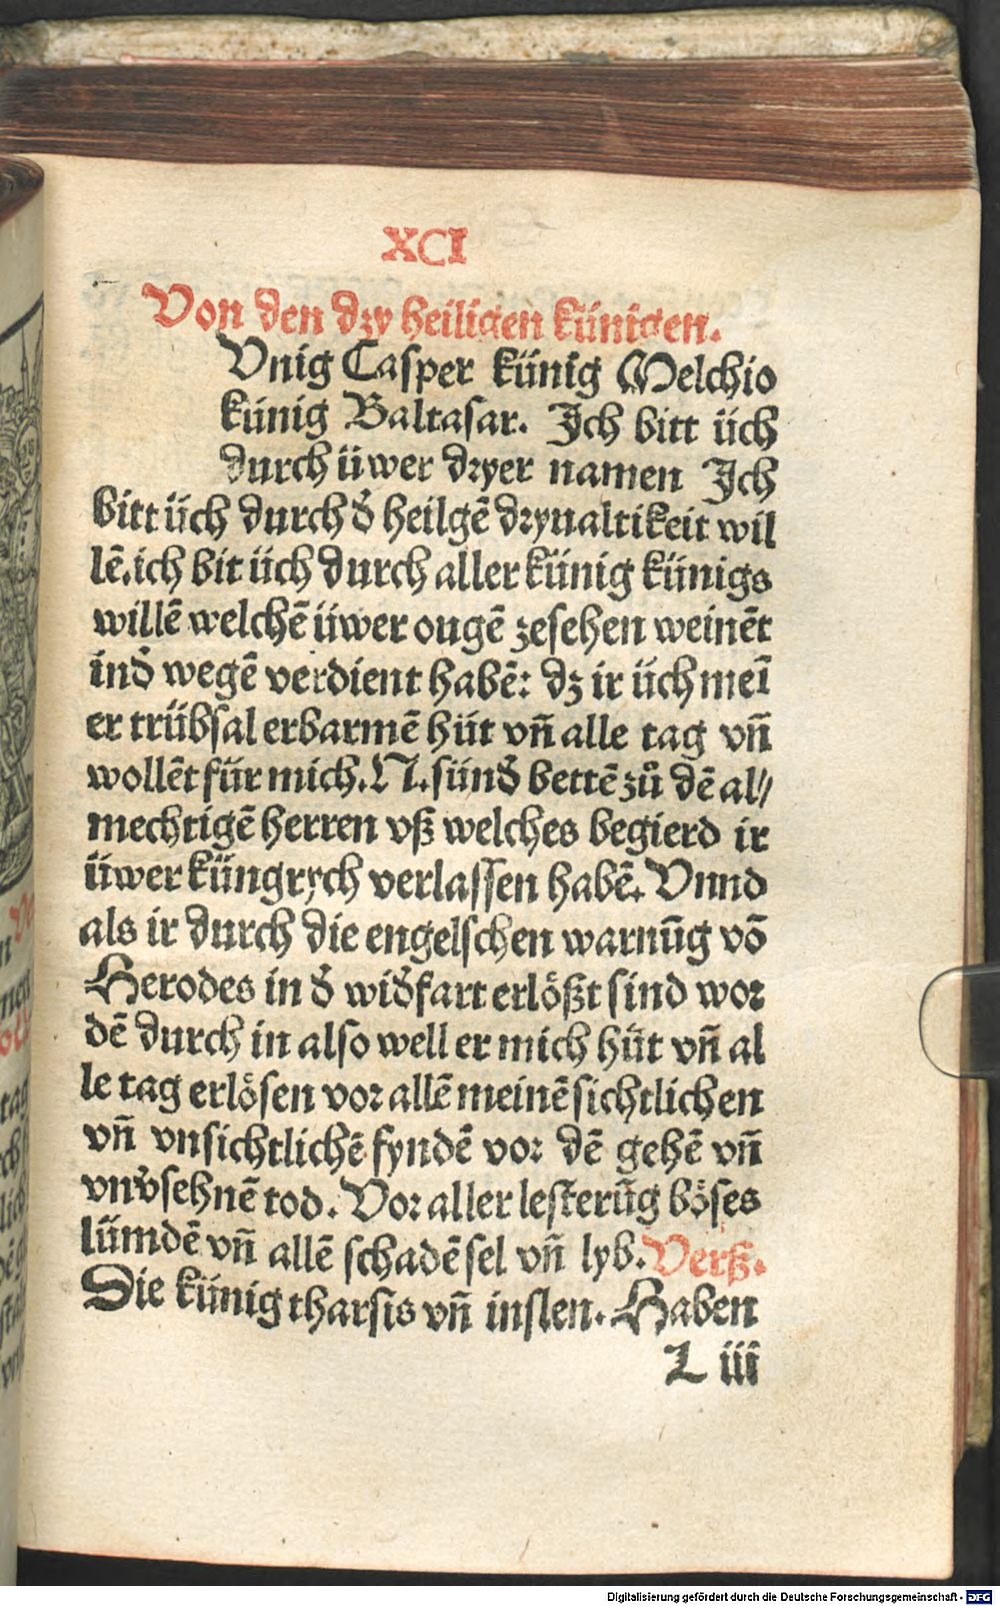 XCI
Von den dry heiligen künigen.
Vnig Casper künig Melchio
künig Baltasar. Ich bitt üch
durch üwer dryer namen Ich
bitt üch durch d̛ heilgē dryualtikeit wil
lē. ich bit üch durch aller künig künigs
willē welchē üwer ougē zesehen weinēt
ind̛ wegē verdient habē: dz ir üch meī
er trübsal erbarmē hüt vñ alle tag vñ
wollēt für mich. N. sünd̛ bettē zů dē al//
mechtigē herren vß welches begierd ir
üwer küngrych verlassen habē. Vnnd
als ir durch die engelschen warnūg vō
Herodes in d̛ wid̛fart erlößt sind wor
dē durch in also well er mich hüt vñ al
le tag erlösen vor allē meinē sichtlichen
vñ vnsichtlichē fyndē vor dē gehē vñ
vnv̛sehnē tod. Vor aller lesterūg böses
lümdē vñ allē schadē sel vñ lyb. Verß.
Die künig tharsis vñ inslen. Haben
L iii
Digitalisierung gefördert durch die Deutsche Forschungsgemeinschaft - DFG